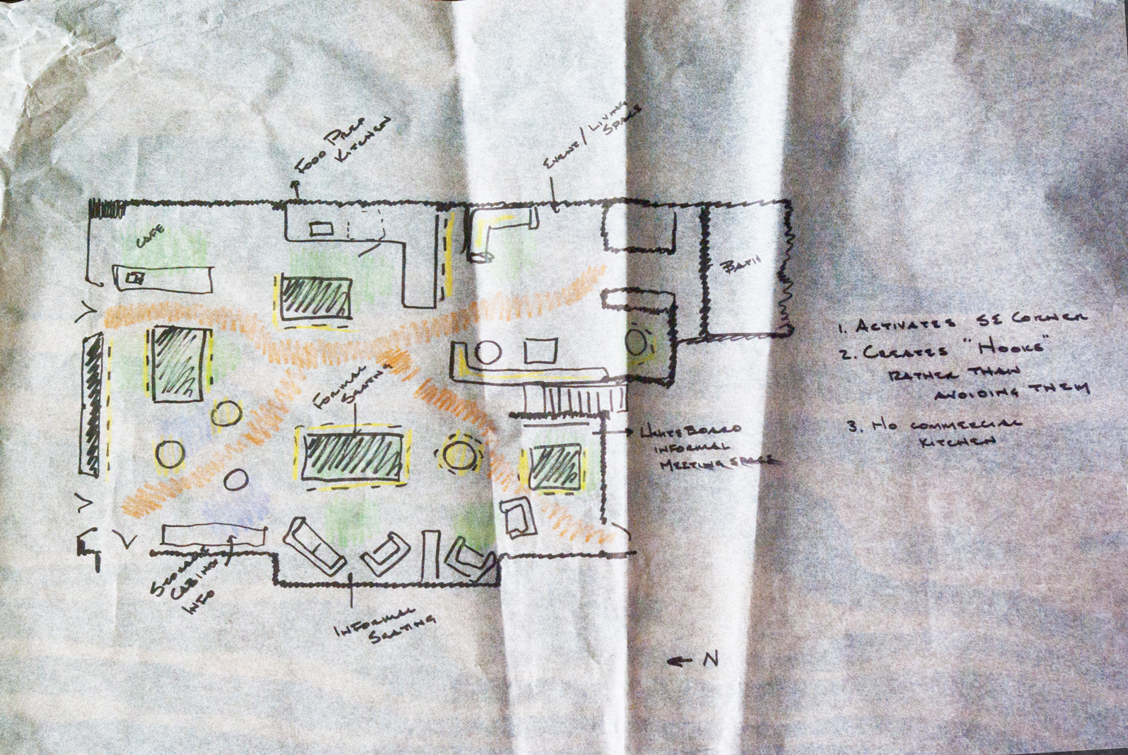 FOOD PREP
KITCHEN
EVENT/LIVING
SPACE
CAFE
BATH
1. ACTIVATES SE CORNER
2. CREATES "HOOKS"
RATHER THAN
AVOIDING THEM
3. NO COMMERCIAL
KITCHEN
FORMAL
SEATING
WHITEBOARD
INFORMAL
MEETING SPACE
STORAGE
INFO
INFORMAL
SEATING
N